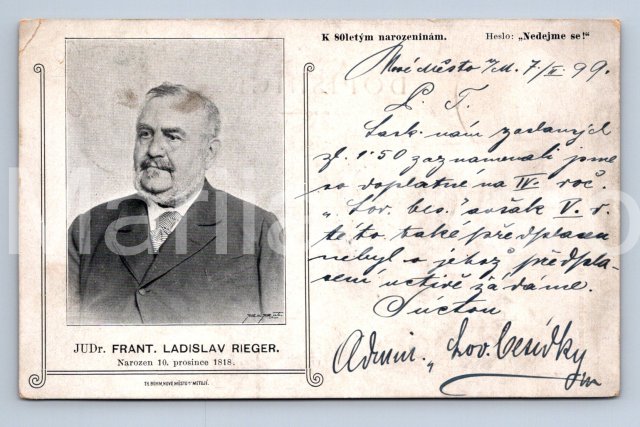 K 80letým narozeninám. Heslo: „Nedejme se!"
Nové Město n/M. 7/II. 99.
P. T.
Lask. nám zaslaných
zl. 1·50 zaznamenali jsme
co doplatné na IV. roč.
„Lov. bes." avšak V. r.
této také předplacen
nebyl o jehož předpla-
cení uctivě žádáme.
S úctou
Admin. „Lov. besídky
JUDr. FRANT. LADISLAV RIEGER.
Narozen 10. prosince 1818.
TB. BÖHM, NOVÉ MĚSTO n METUJÍ.